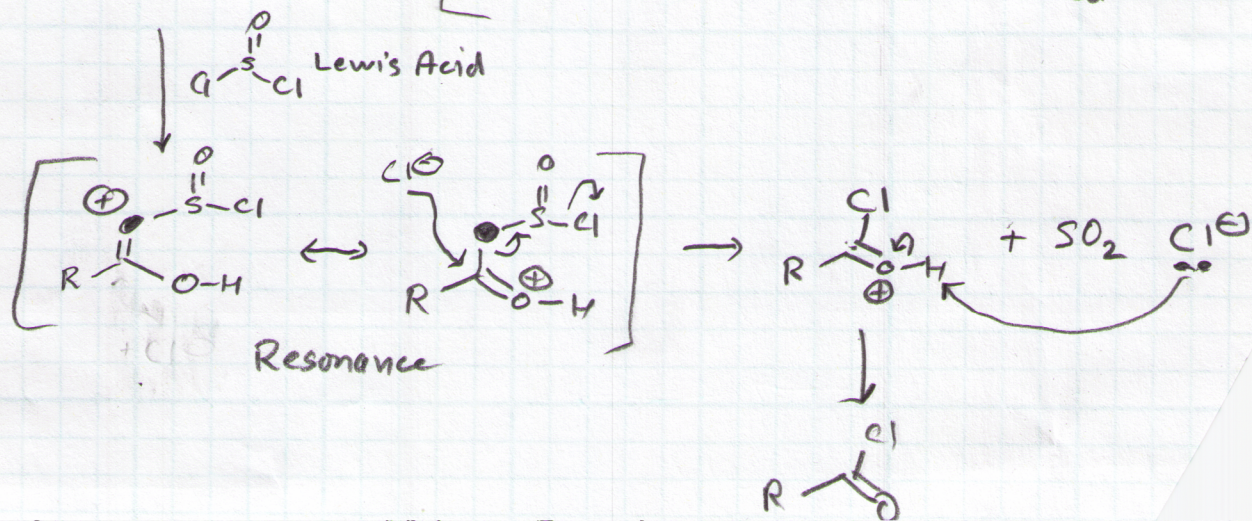 O
Cl S Cl Lewis Acid
⊕ O S Cl
R O-H
Cl⊖ O S Cl
R O-H ⊕
Resonance
Cl
R O H ⊕
+ SO2 Cl⊖
Cl
R O